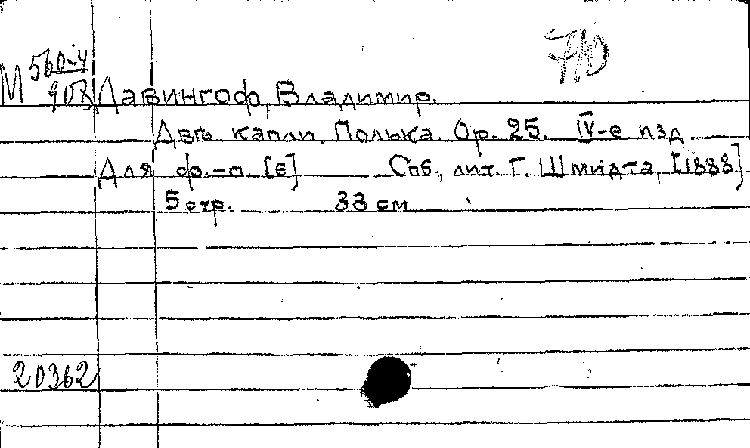 М 560-4
903 Давингоф, Владимир.
Двѣ капли. Полька. Op. 25. IV-е изд.
Для ф.-п. [е] Спб., лит. Г. Шмидта, [1888]
5 стр. 33 см
20362